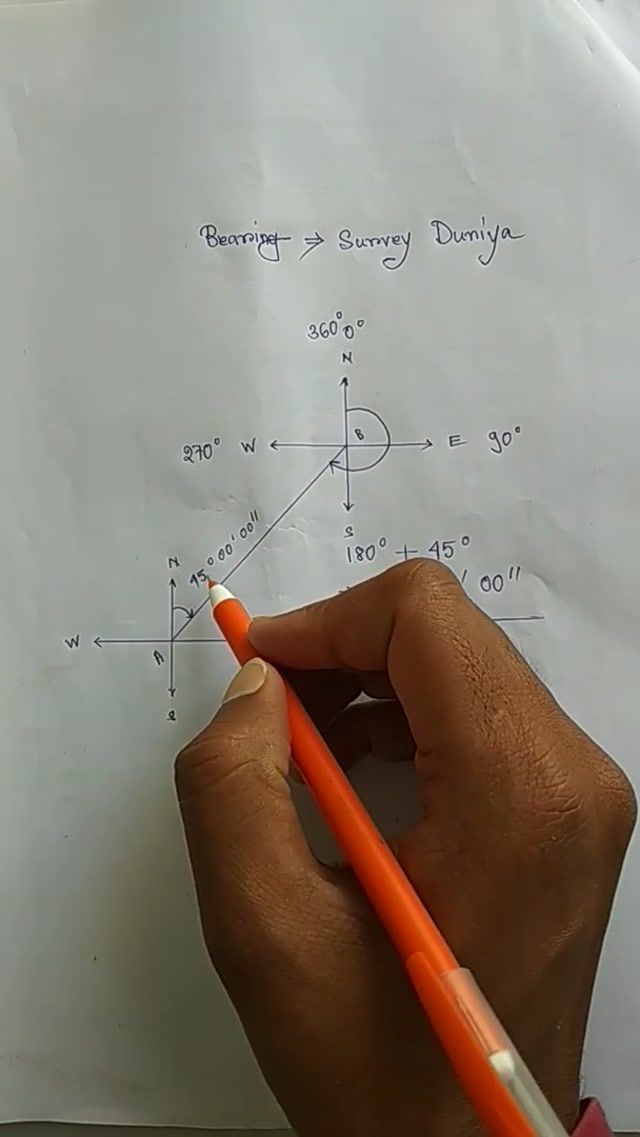 Bearing ⇒ Survey Duniya
360° 0°
N
270° W B E 90°
S
180° + 45°
00' 00"
45° 00' 00"
N
W
A
S